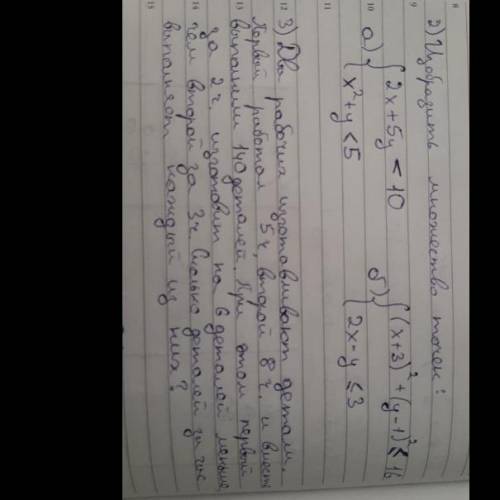 8
9 2) Изобразить множество точек:
10 а) { 2x+5y < 10 б) { (x+3)²+(y-1)² ≤ 16
{ x²+y < 5 { 2x-y ≤ 3
11
12 3) Два рабочих изготавливают детали.
Первый работал 5ч, второй 8ч. и вмест
13 выполнили 140 деталей. При этом первый
за 2ч. изготовит на 6 деталей меньше
14 чем второй за 3ч. Сколько деталей за час
выполняет каждый из них?
15